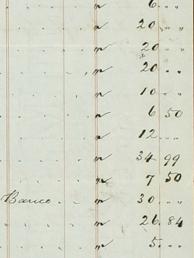 " 6 " "
" 20 " "
" 20 " "
" 20 " "
" 10 " "
" 6 50
" 12 " "
" 34 99
" 7 50
" 30 " "
" 26 84
" 5 " "